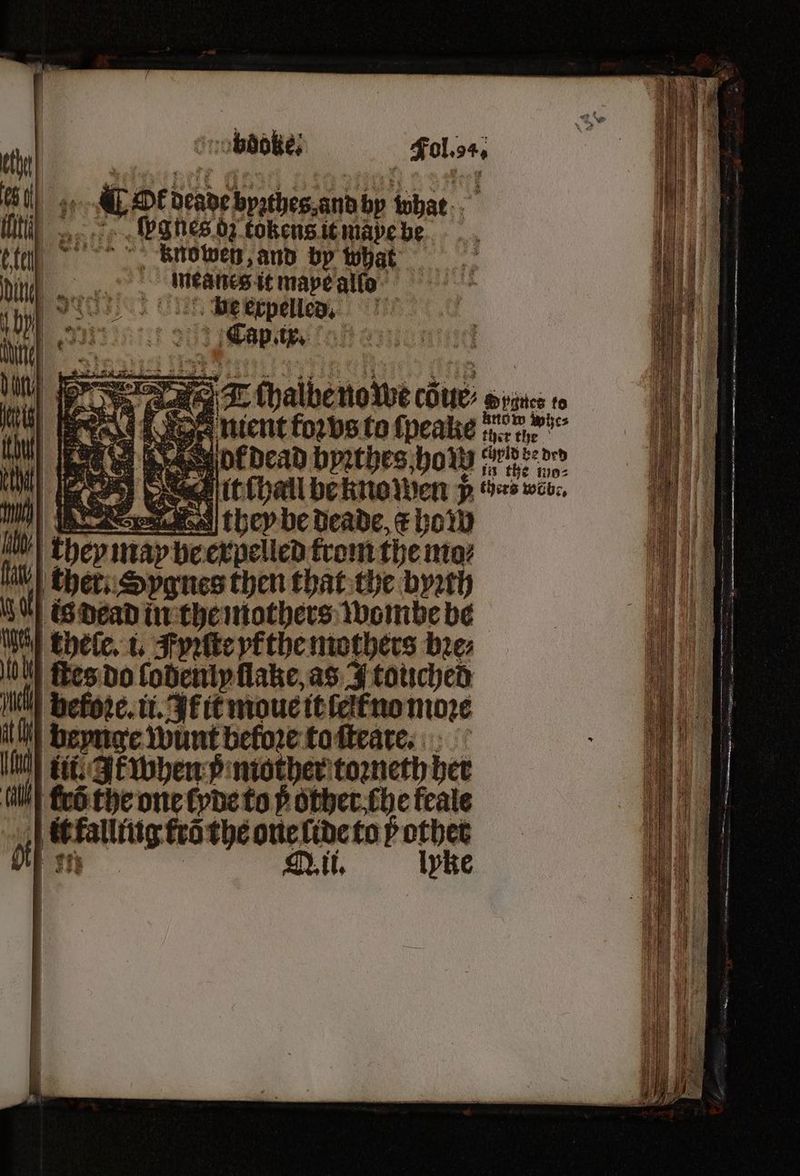 booke. Fol.94.
¶ Of deade byrthes, and by what
sygnes or tokens it maye be
knowen, and by what
meanes it maye also
be expelled.
Cap.ix.
IT shalbe nowe cõue-
nient for vs to speake
of dead byrthes, how
it shall be knowen þͭ
they be deade, & how
they may be expelled from the mo-
ther. Sygnes then that the byrth
is dead in the mothers wombe be
these. i. Fyrste yf the mothers bre-
stes do sodenly slake, as I touched
before. ii. If it moue it self no more
beynge wunt before to steare.
iii. If when þͤ mother torneth her
frõ the one syde to þͤ other, she feale
it fallinge frõ the one side to þͤ other
M.ii. lyke
Sygnes to
know whe-
ther the
chyld be ded
in the mo-
thers wõbe.